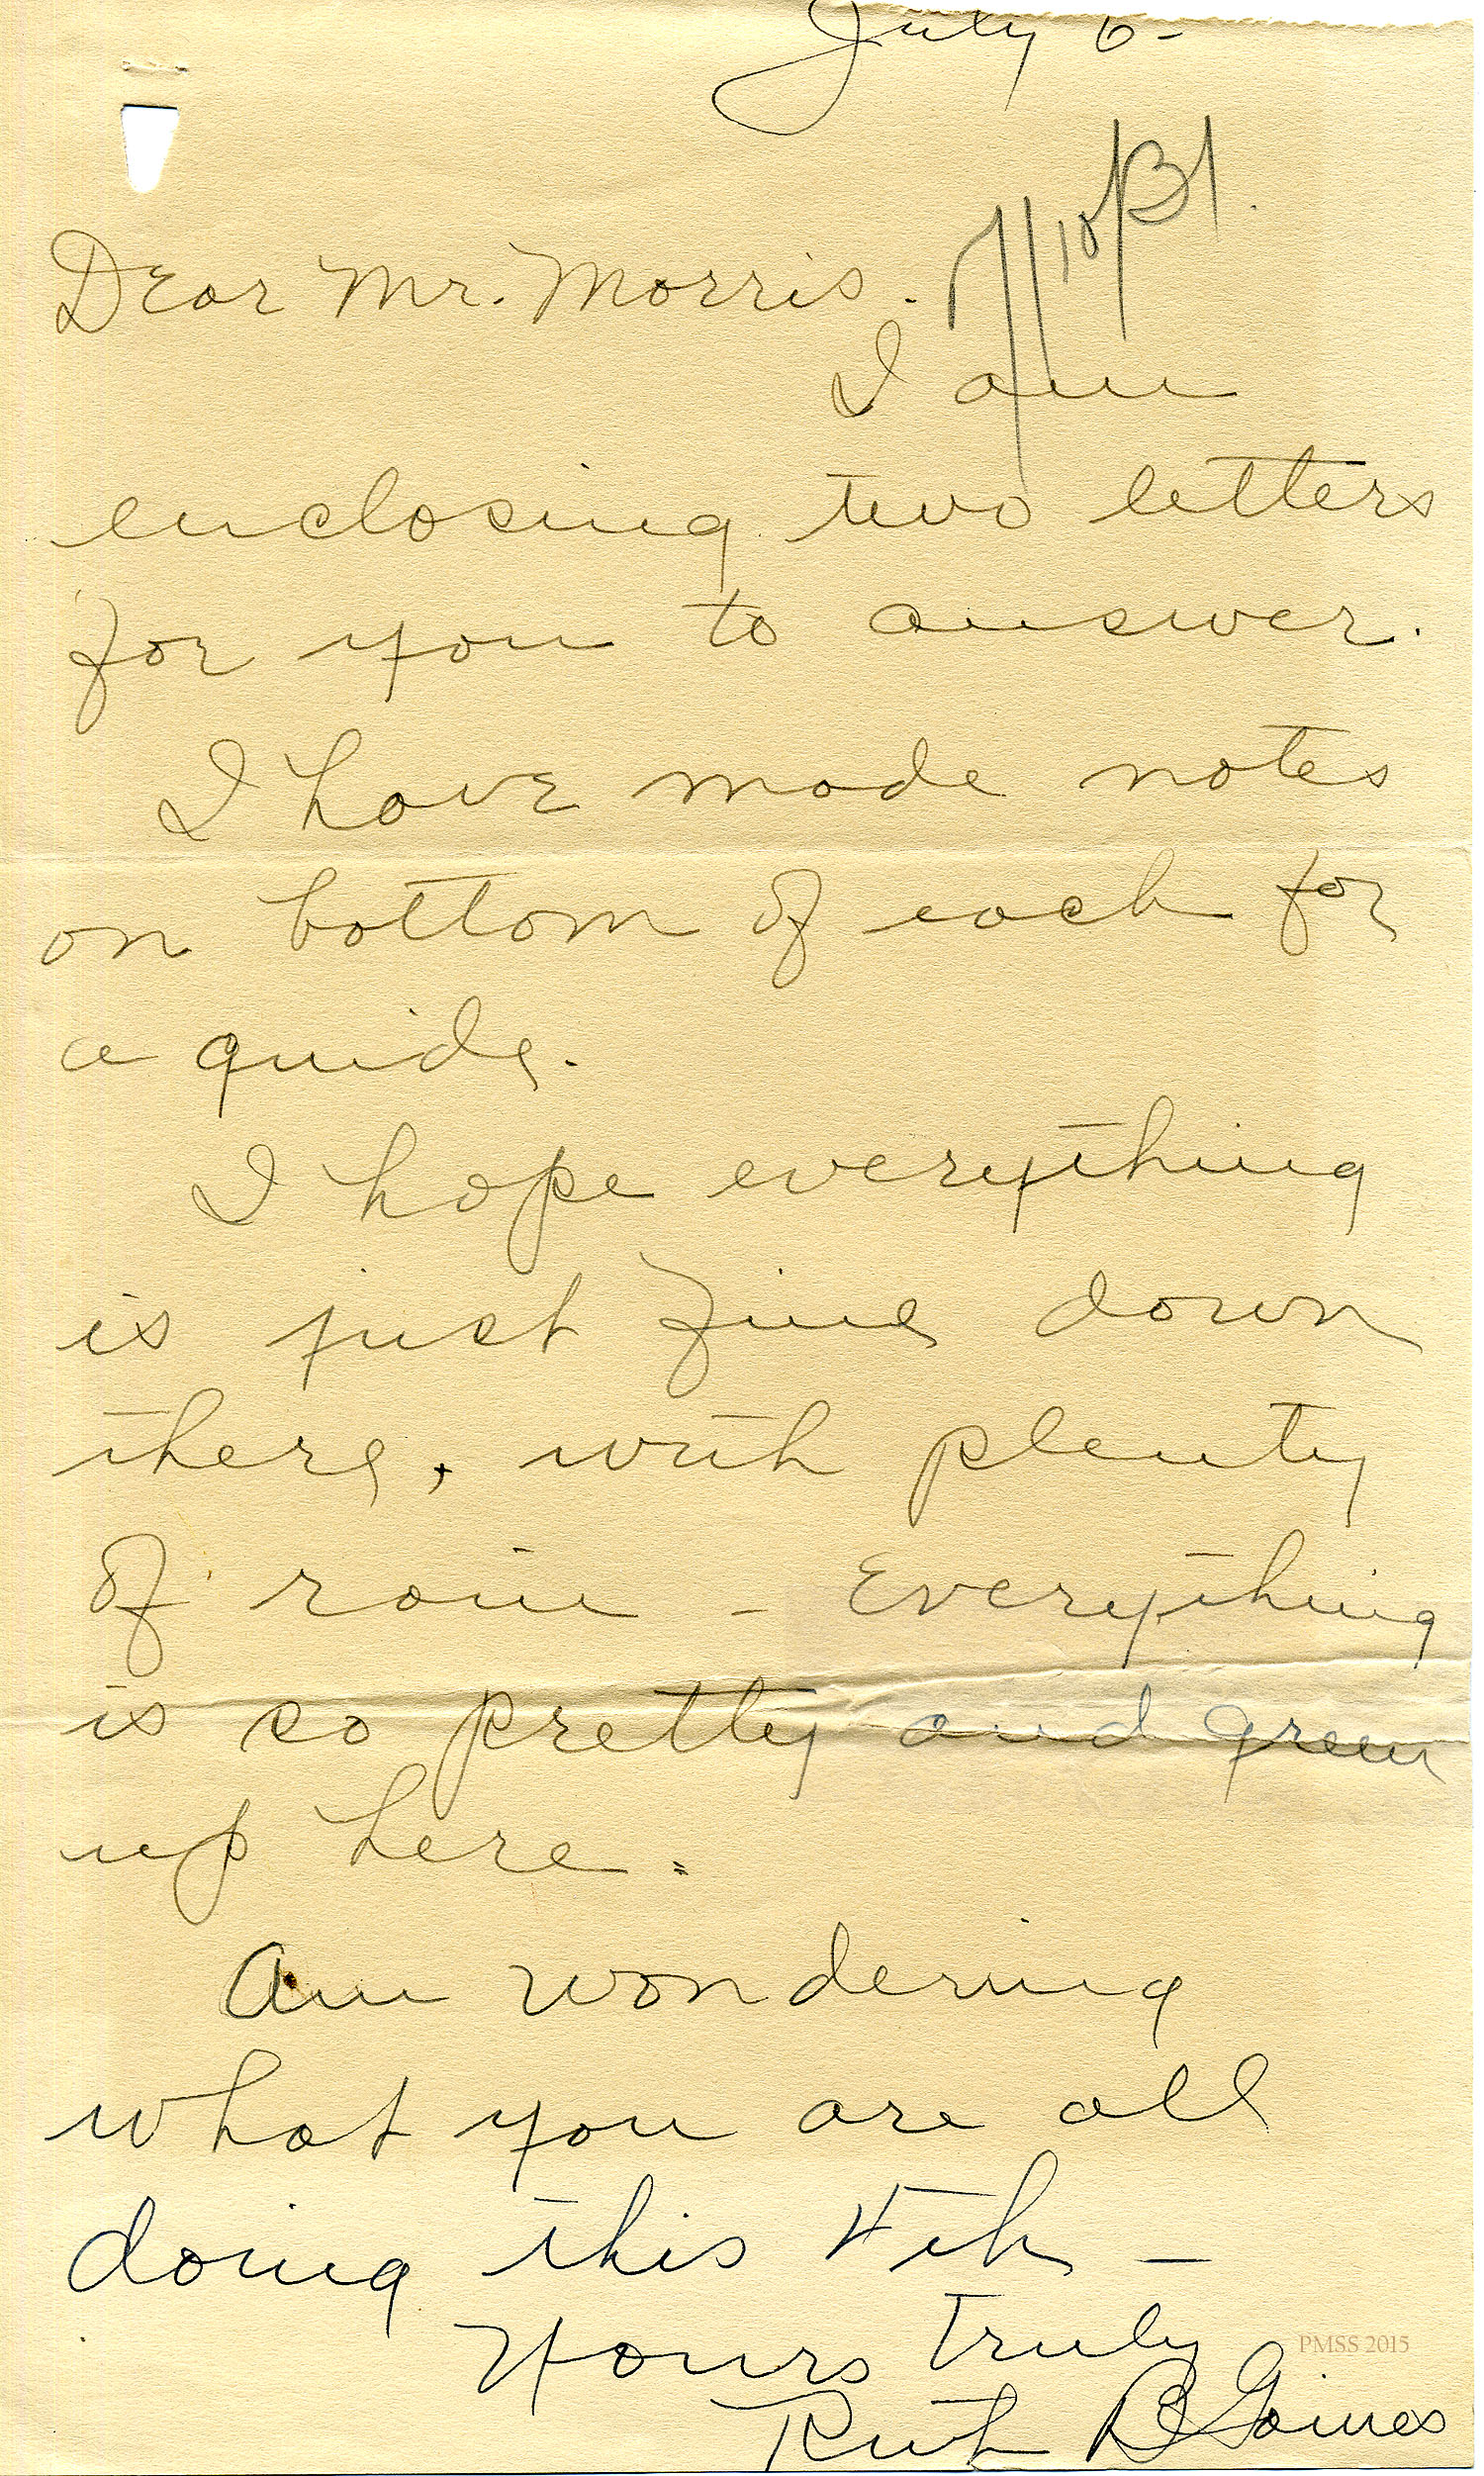 July 6-
Dear Mr. Morris.
I am
enclosing two letters
for you to answer.
I have made notes
on bottom of each for
a guide.
I hope everything
is just fine down
there, with plenty
of rain - Everything
is so pretty and green
up here.
Am wondering
what you are all
doing this 4th -
Yours truly
PMSS 2015
Ruth B Gaines